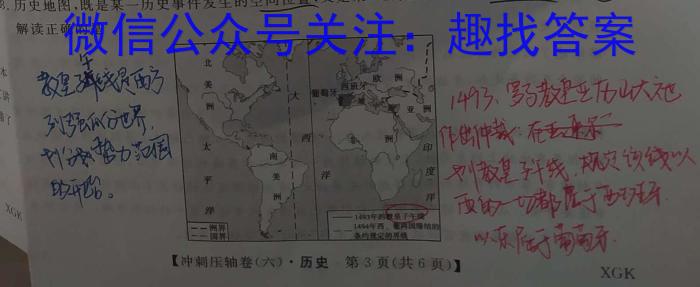 8. 历史地图,既是某一历史事件发生的空间位置
解读正确的是
微信公众号关注：趣找答案
教皇子午线是西方
列强瓜分世界、
划分势力范围
的开始。
北
美
洲
大
西
洋
欧
洲
葡萄牙
西班牙
亚
洲
非
洲
太
平
洋
南
美
洲
印
度
洋
洲界
国界
1493年的教皇子午线
1494年西、葡两国缔结的
条约规定的界线
1493、罗马教皇亚历山大六世
作出仲裁:在
列教皇子午线,规定该线以
西的一切都属于西班牙
以东属于葡萄牙.
【冲刺压轴卷(六)·历史 第3页(共6页)】
XGK
XGK